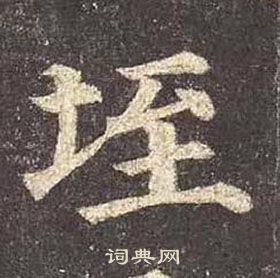 垤
词典网